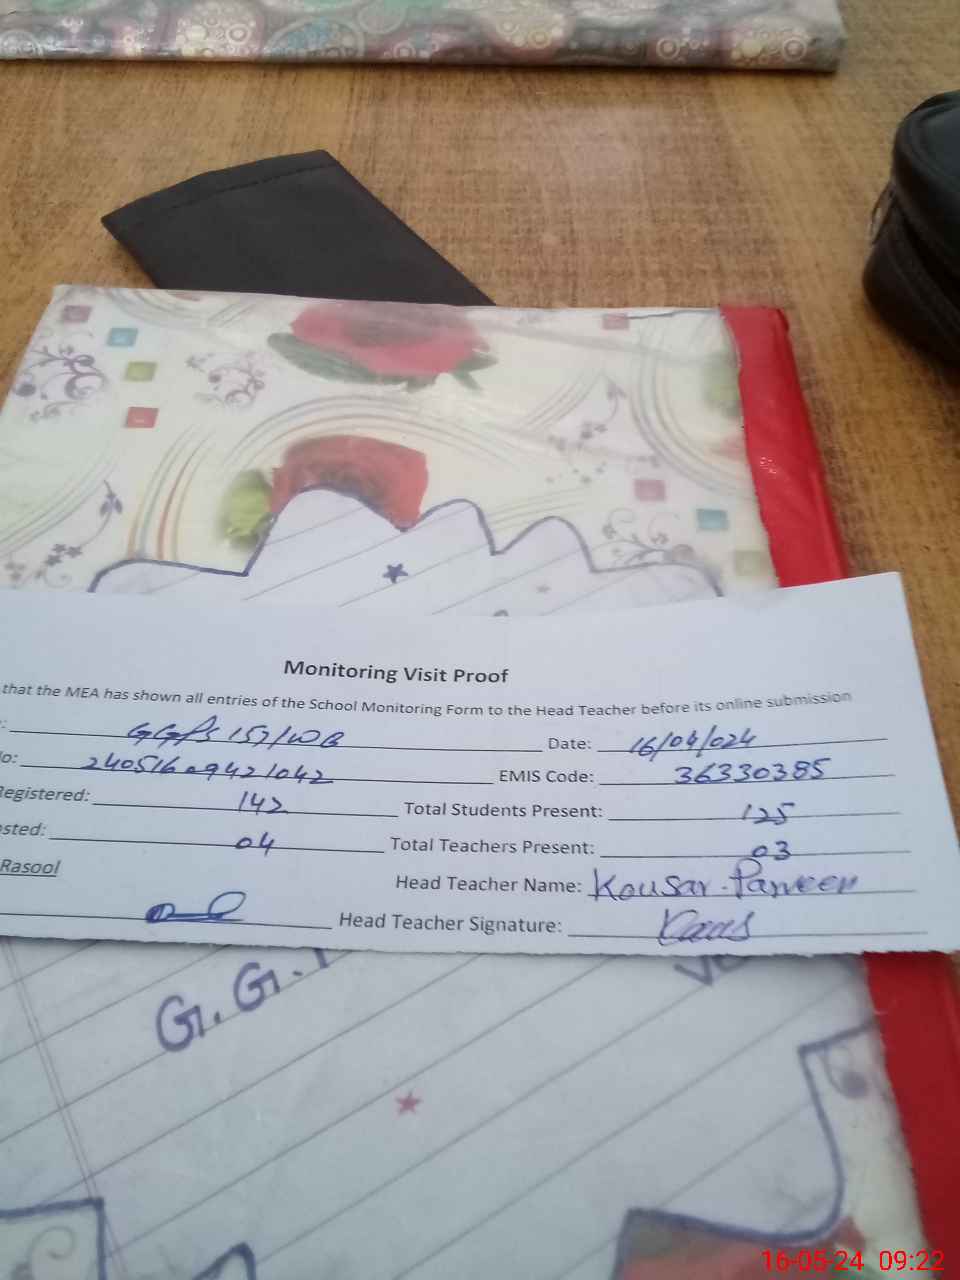 Monitoring Visit Proof
that the MEA has shown all entries of the School Monitoring Form to the Head Teacher before its online submission
GGPS 157/WB Date: 16/04/024
No: 24051609421042 EMIS Code: 36330385
Registered: 142 Total Students Present: 125
osted: 04 Total Teachers Present: 03
Rasool Head Teacher Name: Kousar Parveen
Head Teacher Signature:
G.G.
16-05-24 09:22